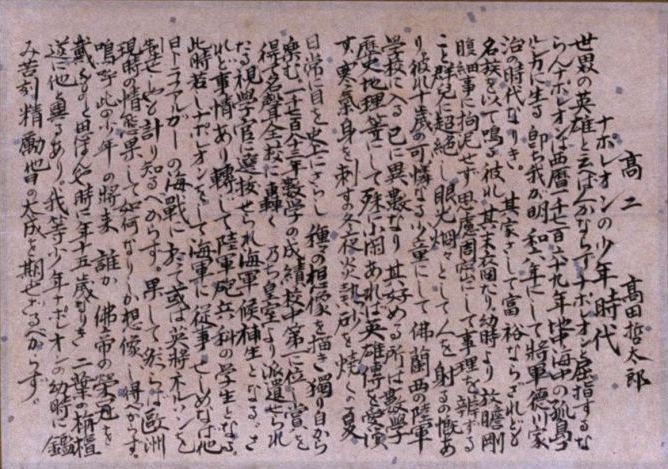 高二　高田哲太郎
ナポレオンの少年時代
世界の英雄と云へば人かならずナポレオンを屈指するな
らんナポレオンは西暦一千七百六十九年地中海中の孤島
に生る即ち我が明和六年にして將軍德川家
治の時代なりき。其家さして富裕ならざれども
名族を以て鳴る彼れ其末裔たり幼時より放膽剛
腹細事に拘泥せず思慮周密にして事理を辨ずる
こと群兒に超絶し眼光烱々として人を射るの慨あ
り。彼れ十歳の可憐なる少童にして佛蘭西の陸軍
學校に入る已に異數なり其好める所は數學
歴史地理等にして殊に小閑あれば英雄傳を愛讀
す。寒氣身を刺す冬夜炎熱砂を燒く夏
日常に目を史にさらし種々の想像を描き獨り自から
樂む一千七百八十三年數学の成績校中第一に位し賞を
得て名聲全校に轟く乃ち皇室より派遣せられ
たる視學官に選抜せられ海軍候補生となる。さ
れど事情あり轉じて陸軍砲兵科の學生となる
此時若しナポレオンをして海軍に從事せしめなば他
日トラファルガーの海戰に於て或は英將ネルソンを
せしや計り知るべからず。果して然らば歐洲
現時の情態果して如何なりしか想像し得べからず。
嗚呼此の少年の將來誰か佛帝の榮冠を
戴くものと思はんや時に年十五歳なりき二葉の栴檀
遂に他に異るあり。我等少年ナポレオンの幼時に鑑
み苦刻精勵他日の大成を期せざるべからず。